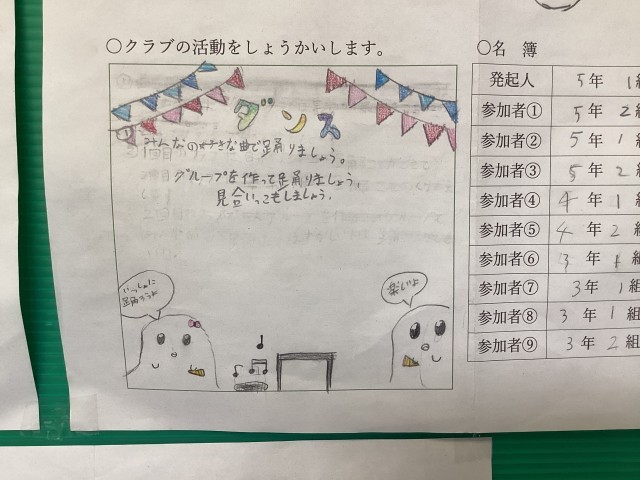 〇クラブの活動をしょうかいします。
ダンス
みんなの好きな曲で踊りましょう。
グループを作って踊りましょう。
見合いっこもしましょう。
いっしょに
踊ろうよ
楽しいよ
〇名 簿
発起人 5年 1組
参加者① 5年 2組
参加者② 5年 1組
参加者③ 5年 2組
参加者④ 4年 1組
参加者⑤ 4年 2組
参加者⑥ 3年 1組
参加者⑦ 3年 1組
参加者⑧ 3年 1組
参加者⑨ 3年 2組